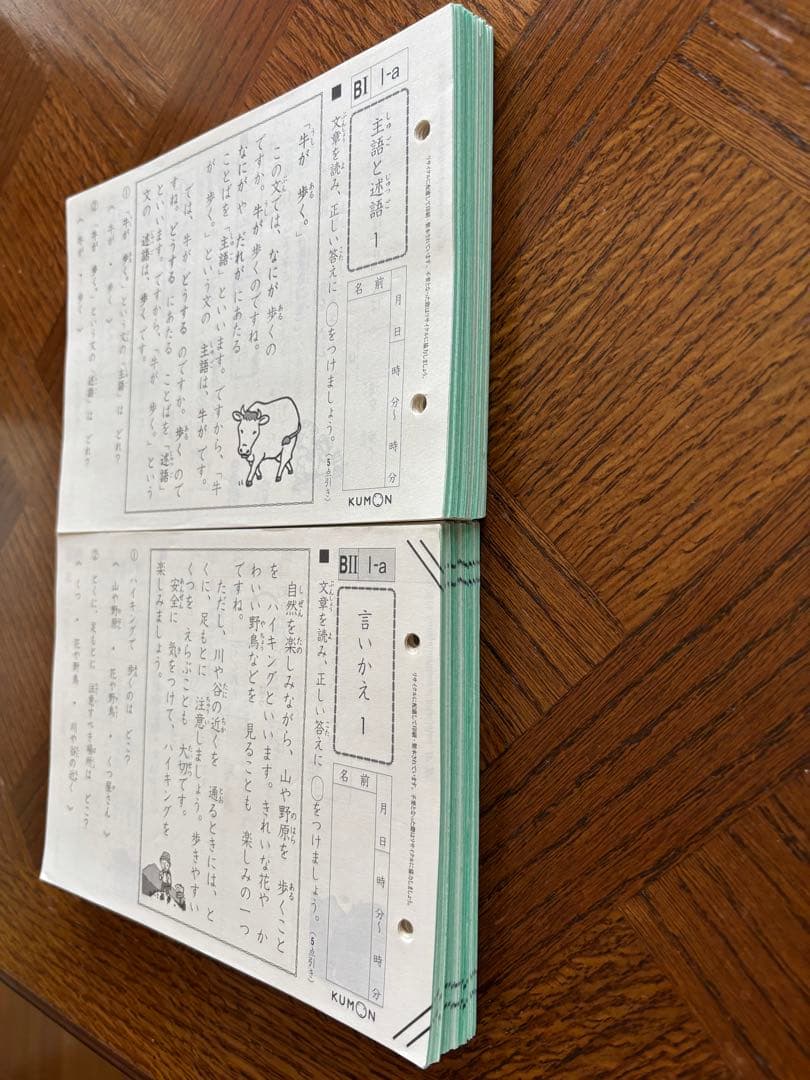 BI 1-a
主語と述語 1
月 日 時 分～ 時 分
名前
KUMON
■ 文章を読み、正しい答えに ◯をつけましょう。(5点引き)
「牛が 歩く。」
この文では、なにが 歩くの
ですか。牛が 歩くのですね。
なにが や だれが にあたる
ことばを 「主語」といいます。ですから、「牛
が 歩く。」という文の 主語は、牛が です。
では、牛が どうする のですか。歩く ので
すね。どうする にあたる ことばを 「述語」
といいます。ですから、「牛が 歩く。」という
文の 述語は、歩く です。
① 「牛が 歩く。という文の 「主語」は どれ?
《 牛が • 歩く 》
② 牛が 歩く。という文の 「述語」は どれ?
《 牛が • 歩く 》
BII 1-a
言いかえ 1
月 日 時 分～ 時 分
名前
KUMON
■ 文章を読み、正しい答えに ◯をつけましょう。(5点引き)
自然を楽しみながら、山や野原を 歩くこと
を ハイキングといいます。きれいな花や か
わいい野鳥などを 見ることも 楽しみの一つ
ですね。
ただし、川や谷の近くを 通るときには、と
くに、足もとに 注意しましょう。歩きやすい
くつを えらぶことも 大切です。
安全に 気をつけて、ハイキングを
楽しみましょう。
① ハイキングで 歩くのは どこ?
《 山や野原 • 花や野鳥 • くつ屋さん 》
② とくに、足もとに 注意すべき場所は どこ?
《 くつ • 花や野鳥 • 川や谷の近く 》